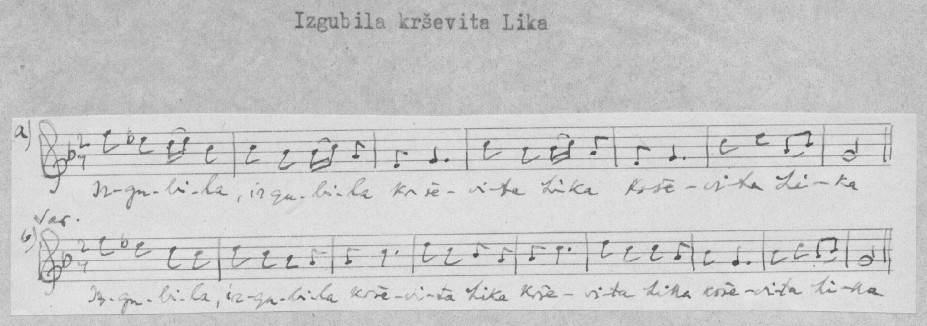 Izgubila krševita Lika
a) 2 4 Iz-gu-bi-la, iz-gu-bi-la krše-vi-ta Lika krše-vi-ta Li-ka
Var.
b) 2 4 Iz-gu-bi-la, iz-gu-bi-la krše-vi-ta Lika krše-vi-ta Lika krše-vi-ta Li-ka